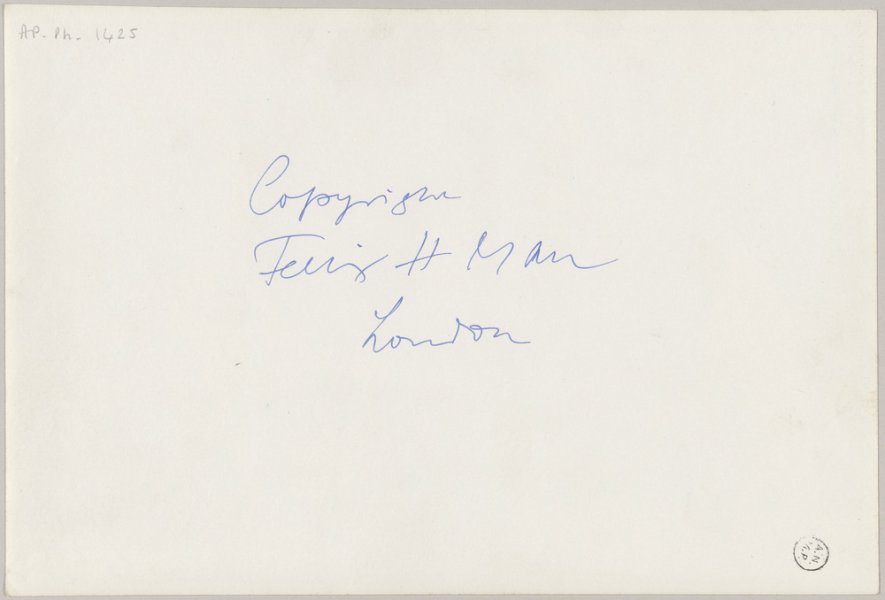 AP. Ph. 1425
Copyright
Felix H Man
London
A.N.
A.P.